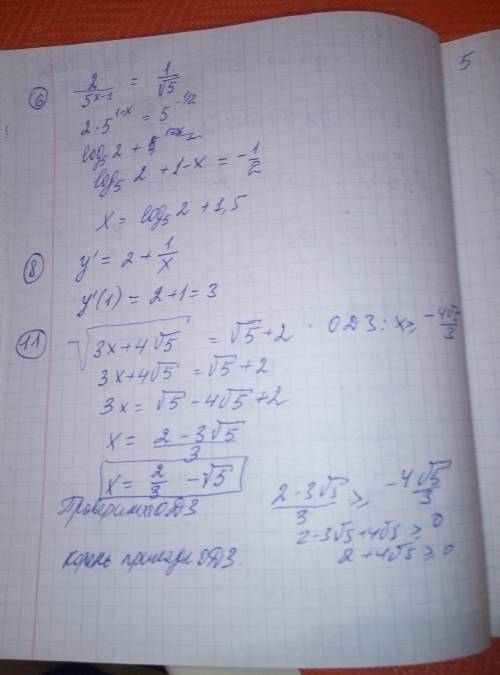 5
⑥ 2/5^(x-1) = 1/√5
2·5^(1-x) = 5^(-1/2)
log₅2 + 1-x = -1/2
x = log₅2 + 1,5
⑧ y' = 2 + 1/x
y'(1) = 2+1 = 3
⑪ √(3x+4√5) = √5+2 · ОДЗ: x ≥ -4√5/3
3x+4√5 = √5+2
3x = √5 - 4√5 + 2
x = (2-3√5)/3
x = 2/3 - √5
Проверим ОДЗ
(2-3√5)/3 ≥ -4√5/3
2-3√5+4√5 ≥ 0
2+4√5 ≥ 0
корень ОДЗ.